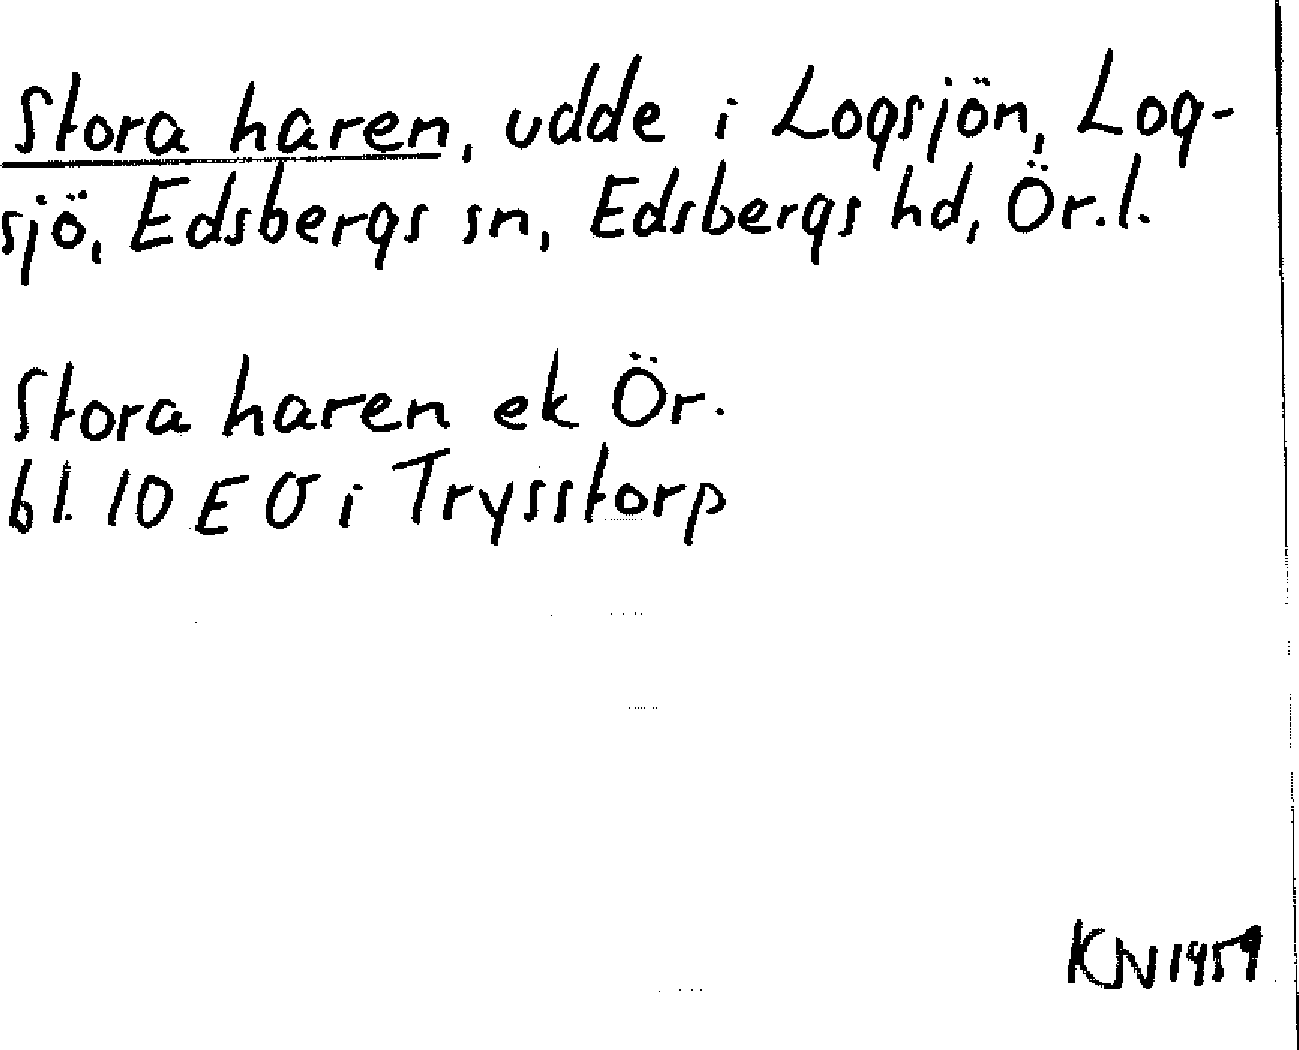 Stora haren, udde i Logsjön, Log-
sjö, Edsbergs sn, Edsbergs hd, Ör.l.
Stora haren ek Ör.
bl. 10 E O i Trysstorp
KN 1959